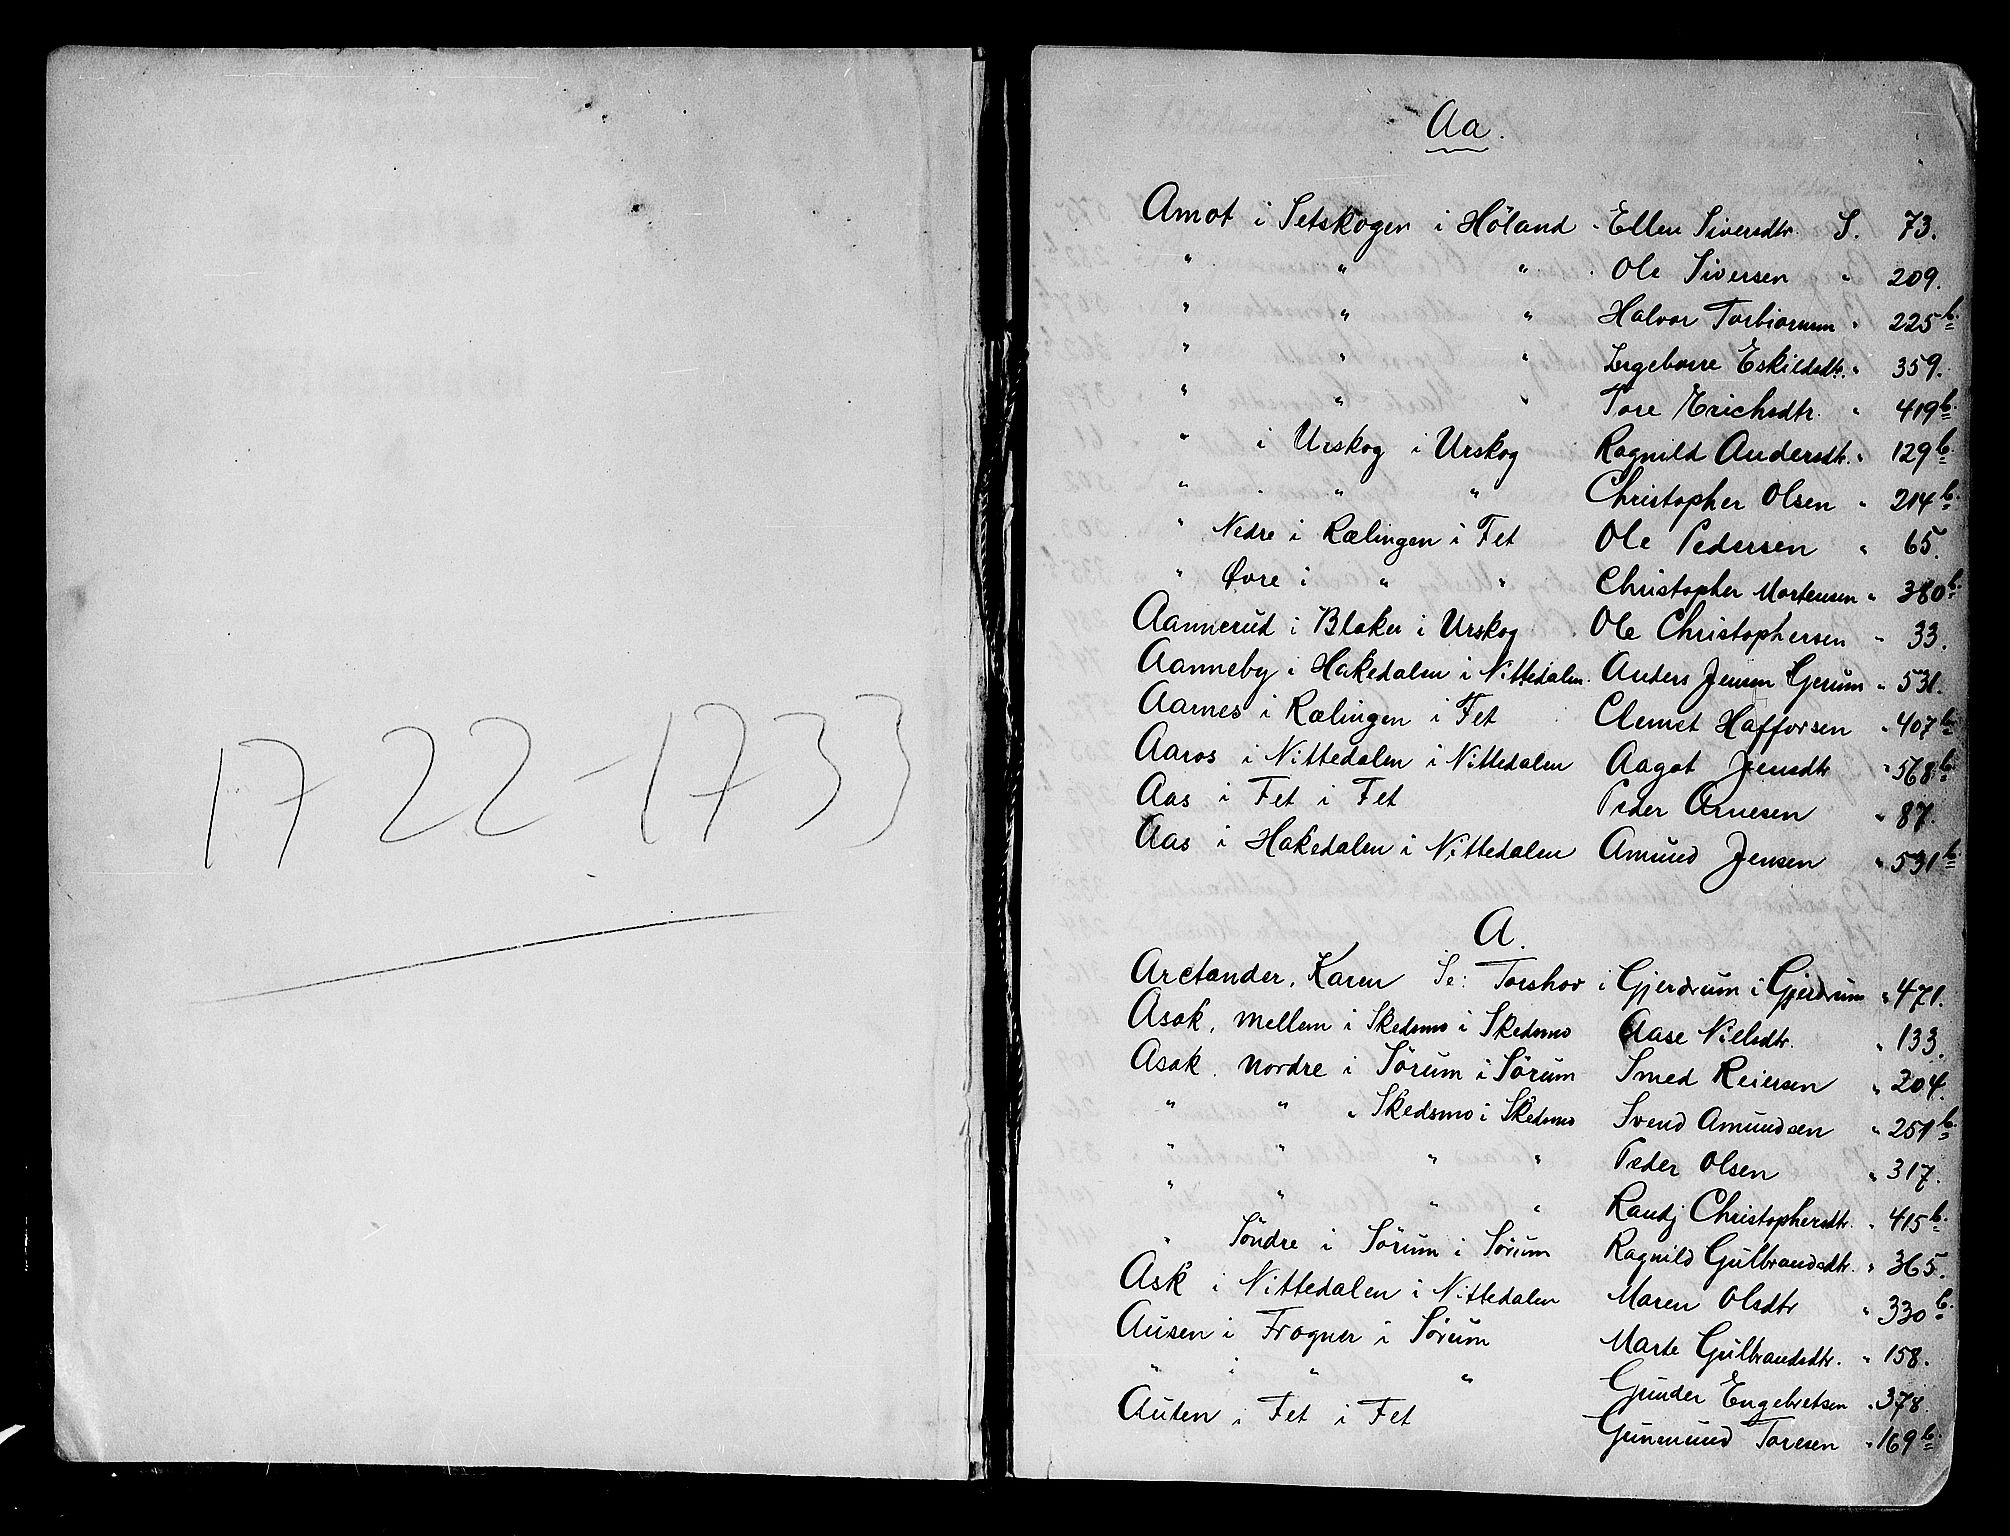 1722-1733
Aa.
Amot i Setskogen i Höland - Ellen Siversdtr. S. 73.
" " " Ole Siversen " 209.
" " " Halvor Torbiornsen " 225 b.
" " " Ingeborre Eskildsdtr. " 359.
" " " Tore Erichsdtr. " 419 b.
" i Urskog i Urskog Ragnild Andersdtr. " 129 b.
" " " Christopher Olsen " 214 b.
" Nedre i Rælingen i Fet Ole Pedersen " 65.
" Øvre i " " Christopher Mortensen " 380 b.
Aannerud i Blaker i Urskog Ole Christophersen " 33.
Aanneby i Hakedalen i Nittedalen. Anders Jensen Gjerum " 531.
Aarnes i Rælingen i Fet Clemet Hafforsen " 407 b.
Aaros i Nittedalen i Nittedalen Aagot Jensdtr " 568 b.
Aas i Fet i Fet Peder Arnesen " 87.
Aas i Hakedalen i Nittedalen Amund Jensen " 531 b.
A.
Arctander, Karen Se: Torshov i Gjerdrum i Gjerdrum " 471.
Asak, mellem i Skedsmo i Skedsmo Aase Nielsdtr. " 133.
Asak, nordre i Sörum i Sörum Smed Reiersen " 204.
" " " Skedsmo i Skedsmo Svend Amundsen " 251 b.
" " " " Peder Olsen " 317.
" " " " Randj Christophersdtr. " 415 b.
" Söndre i Sörum i Sörum Ragnild Gulbrandsdtr. " 365.
Ask i Nittedalen i Nittedalen Maren Olsdtr " 330 b.
Ausen i Frogner i Sörum Marte Gulbrandsdtr. " 158.
" i " " Gunder Engebretsen " 378.
Auten i Fet i Fet Gunmund Toresen " 169 b.